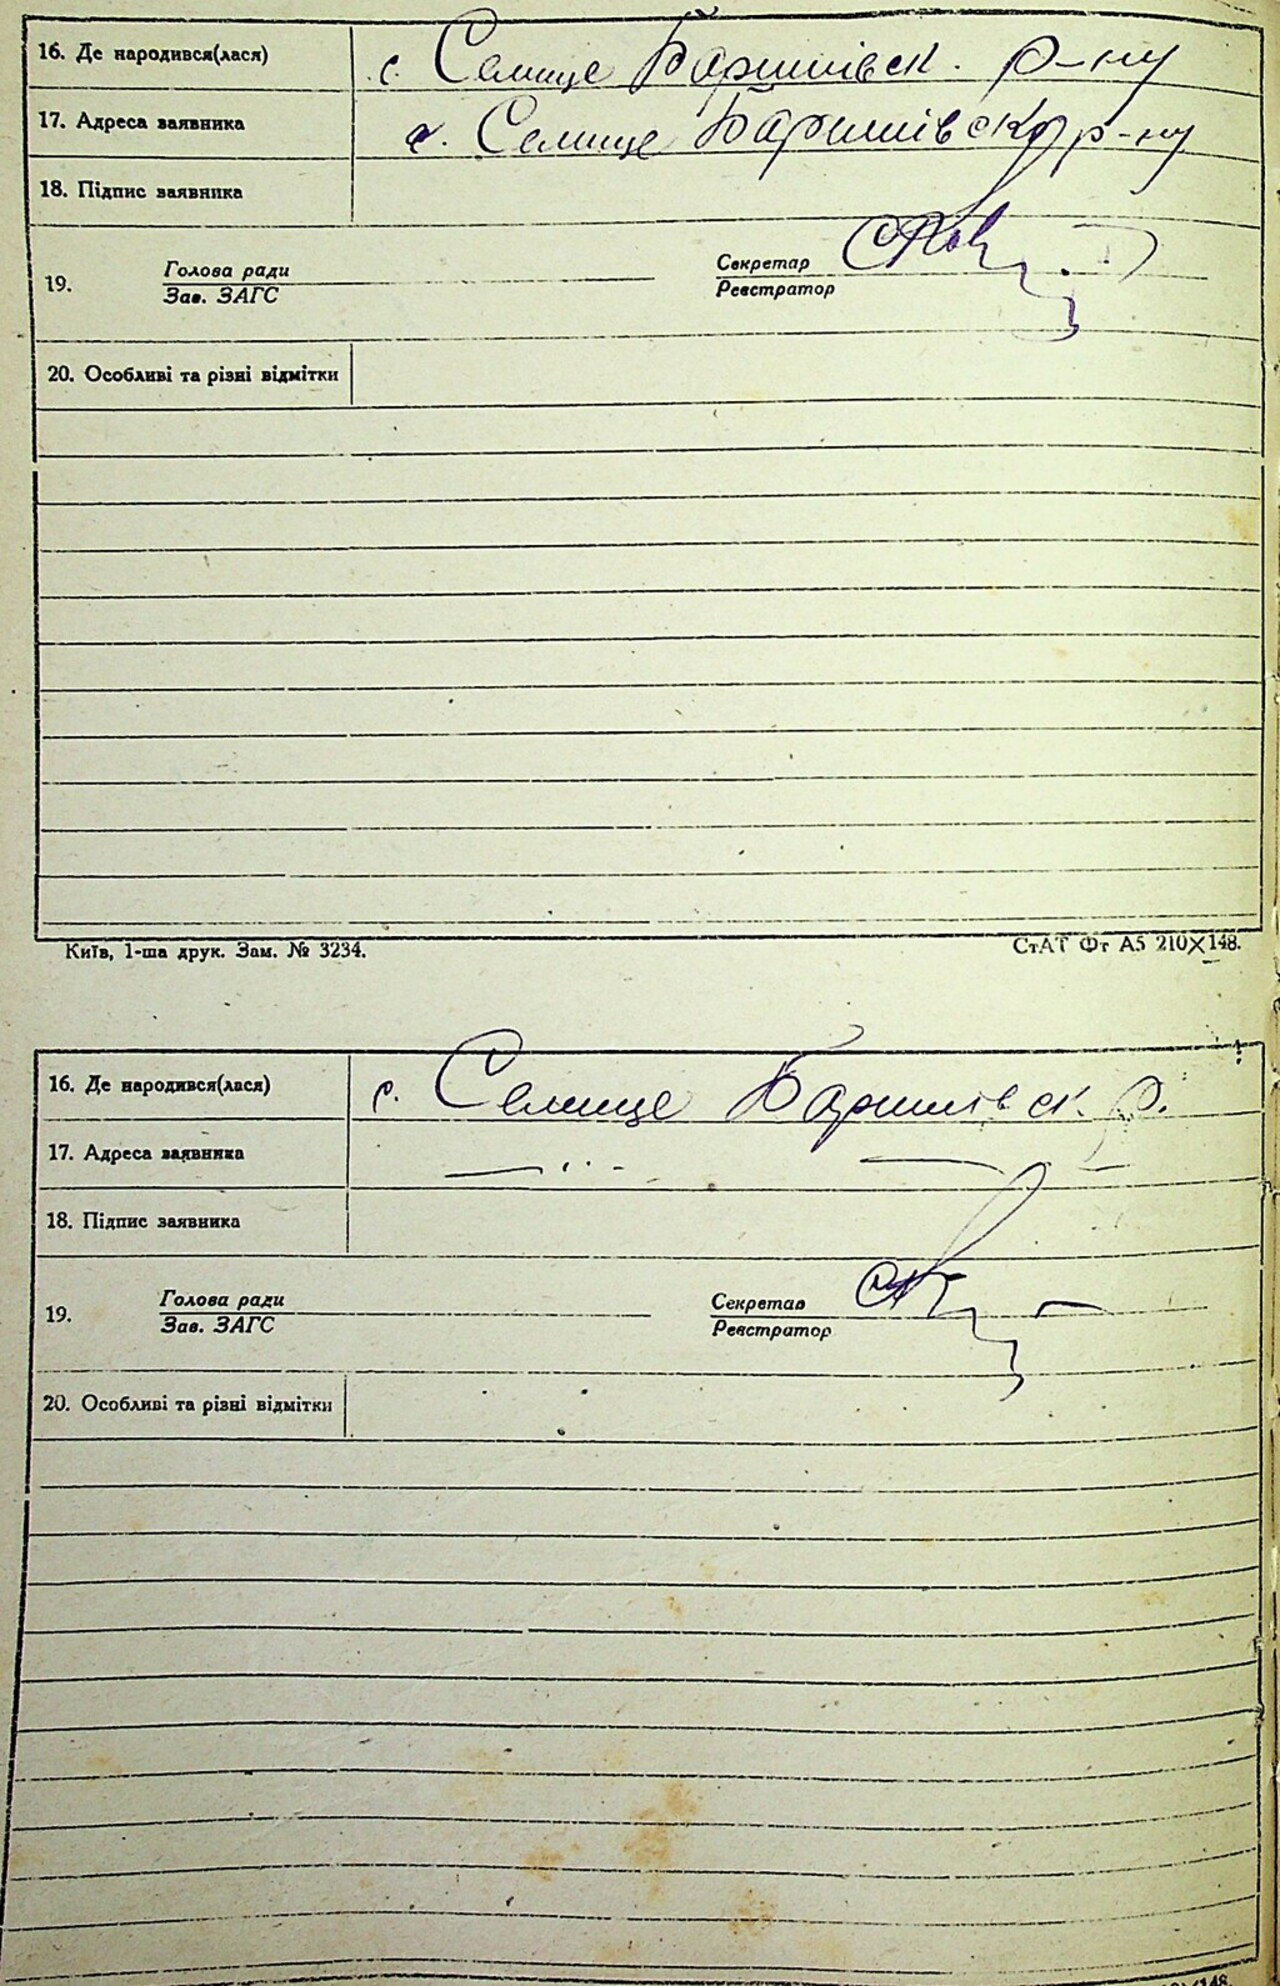 16. Де народився(лася) с. Селище Баришівск. р-ну
17. Адреса заявника с. Селище Баришівск р-ну
18. Підпис заявника
19. Голова ради Секретар
Зав. ЗАГС Реєстратор
20. Особливі та різні відмітки
Київ, 1-ша друк. Зам. № 3234. СтАТ Фт А5 210×148.
16. Де народився(лася) с. Селище Баришівск. р.
17. Адреса заявника — " —
18. Підпис заявника
19. Голова ради Секретар
Зав. ЗАГС Реєстратор
20. Особливі та різні відмітки